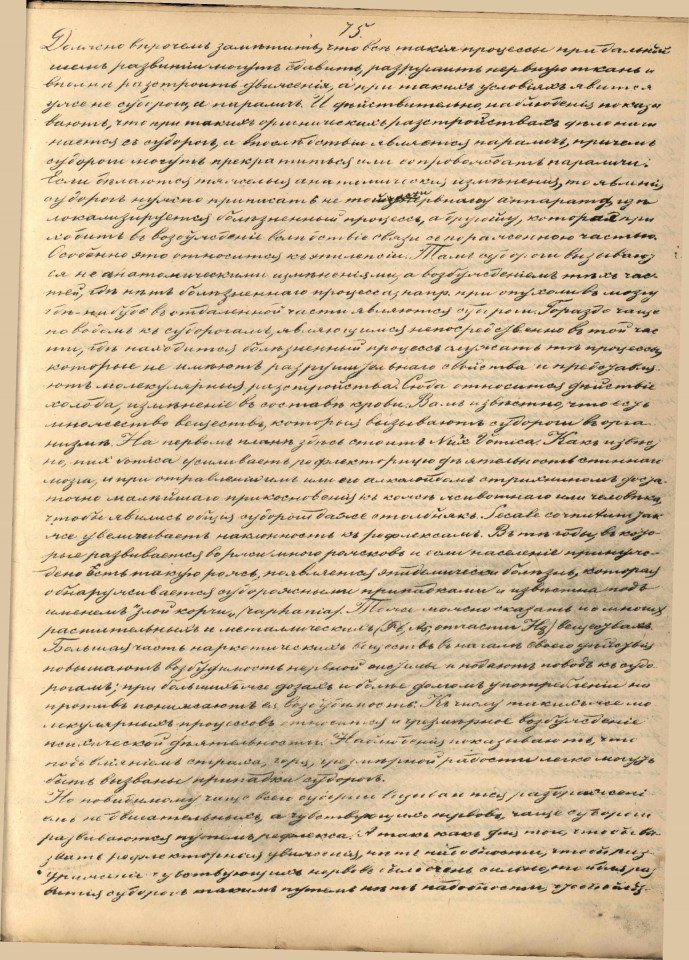 75.
Должно впрочемъ замѣтить, что всѣ такія процессы при дальнѣй
шемъ развитіи могутъ сдавить, разрушить нервную ткань и
вполнѣ разстроить движенія, а при такихъ условіяхъ явится
уже не судорога, а параличъ. И дѣйствительно, наблюденія показы
ваютъ, что при такихъ органическихъ разстройствахъ дѣло начи
нается съ судорогъ, а впослѣдствіи является параличъ, причемъ
судороги могутъ прекратиться или сопровождать параличи;
Если дѣлаются тяжелыя анатомическія измѣненія, то явленія
судорогъ нужно приписать не той нервнаго аппарата, гдѣ
локализируется болѣзненный процессъ, а другой, которая при
ходитъ въ возбужденіе вслѣдствіе связи съ пораженною частью.
Особенно это относится къ эпилепсіи. Тамъ судороги вызываю
ся не анатомическими измѣненіями, а возбужденіемъ тѣхъ час
тей, гдѣ нѣтъ болѣзненнаго процесса; напр. при опухоли въ мозгу
гдѣ-нибудь въ отдаленной части являются судороги. Гораздо чаще
поводомъ къ судорогамъ, являющимся непосредственно въ той час
ти, гдѣ находится болѣзненный процессъ служатъ тѣ процессы,
которые не имѣютъ разрушительнаго свойства и представля
ютъ молекулярныя разстройства. Сюда относится дѣйствіе
холода, измѣненіе въ составѣ крови. Вамъ извѣстно, что есть
множество веществъ, которыя вызываютъ судороги въ орга
низмѣ. На первомъ планѣ здѣсь стоитъ Nux Vomica. Какъ извѣст
но, nux vomica усиливаетъ рефлекторную дѣятельность спиннаго
мозга, и при отравленіи имъ или его алкалоидомъ стрихниномъ доста
точно малѣйшаго прикосновенія къ кожѣ животнаго или человѣка,
чтобы явились общія судороги даже столбнякъ. Secale cornutum так
же увеличиваетъ наклонность къ рефлексамъ. Въ тѣ годы, въ кото
рые развивается во ржи много рожковъ и если населеніе принуж
дено ѣсть такую рожь, появляется эпидемически болѣзнь, которая
обнаруживается судорожными припадками и извѣстна подъ
именемъ "Злой корчи" (raphania). Тоже можно сказать и о многихъ
растительныхъ и металлическихъ (Pb, As, отчасти Hg) веществахъ.
Большая часть наркотическихъ веществъ въ началѣ своего дѣйствія
повышаютъ возбудимость нервной системы и подаютъ поводъ къ судо
рогамъ; при большихъ же дозахъ и болѣе долгомъ употребленіи на
противъ понижаютъ ея возбудимость. Къ числу такихъ же мо
лекулярныхъ процессовъ относится и чрезмѣрное возбужденіе
психической дѣятельности. Наблюденія показываютъ, что
подъ вліяніемъ страха, горя, чрезмѣрной радости легко могутъ
быть вызваны припадки судорогъ.
Но повидимому чаще всего судороги вызываются раздраженi
емъ не двигательныхъ, а чувствующихъ нервовъ, чаще судороги
развиваются путемъ рефлекса. А такъ какъ для того, чтобы вы
звать рефлекторныя движенія, нѣтъ надобности, чтобы раз
драженіе чувствующихъ нервовъ было очень сильно, то и для раз
витія судорогъ такимъ путемъ нѣтъ надобности, чтобы